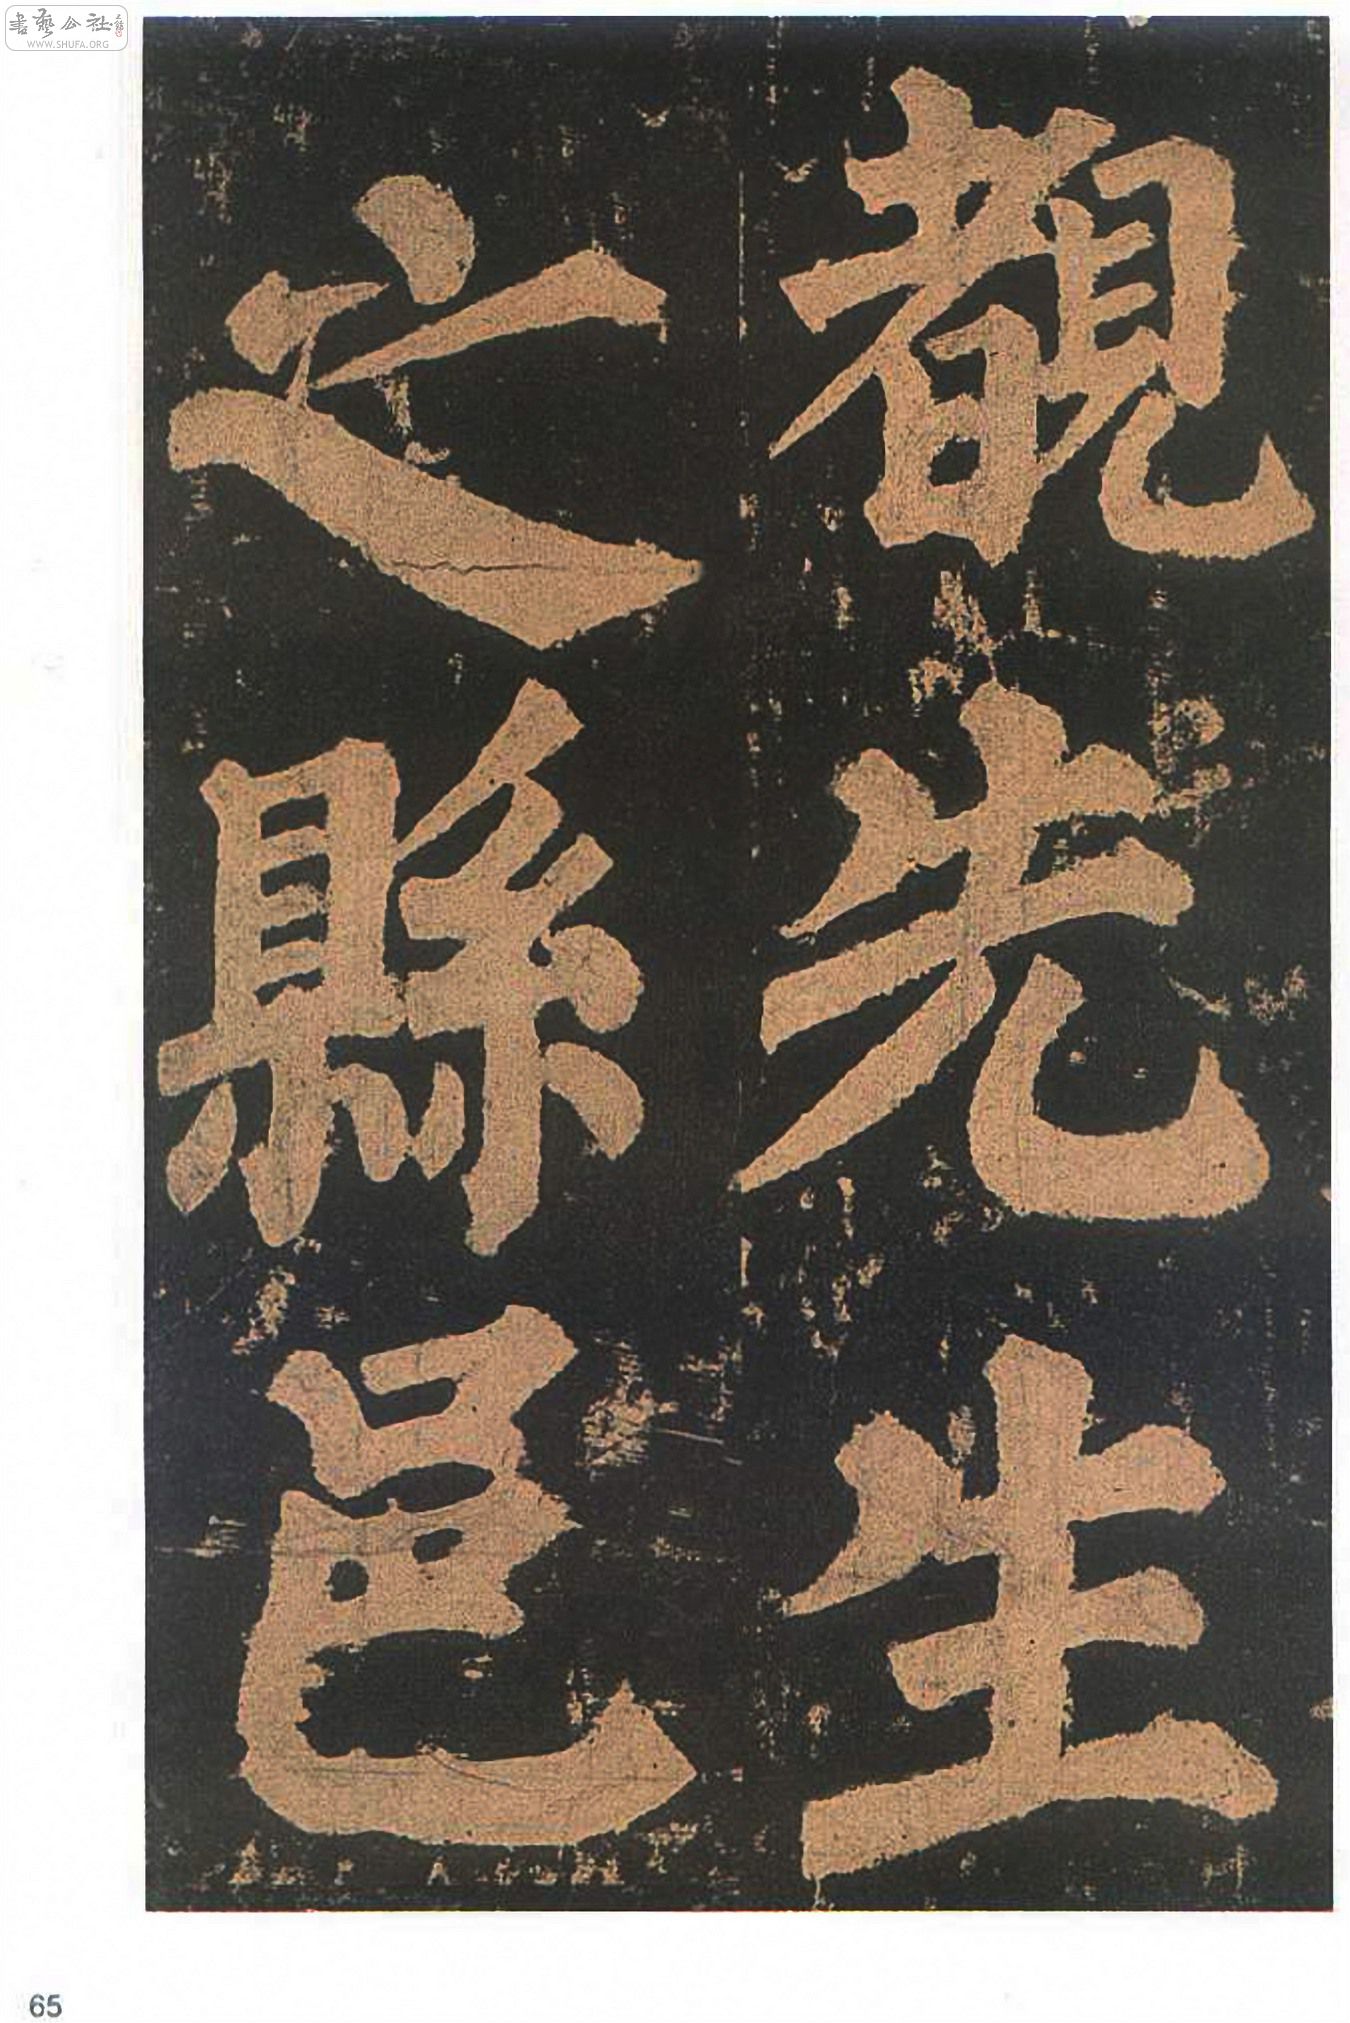 書藝公社
WWW.SHUFA.ORG
覩先生
之縣邑
65